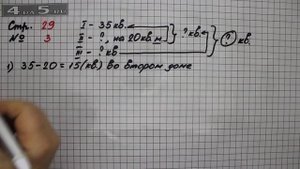 4 или 5
Стр. 29
№ 3
I - 35 кв.
II - ?, на 20 кв. м
III - ? кв
? кв.
? кв.
1) 35-20=15(кв) во втором доме